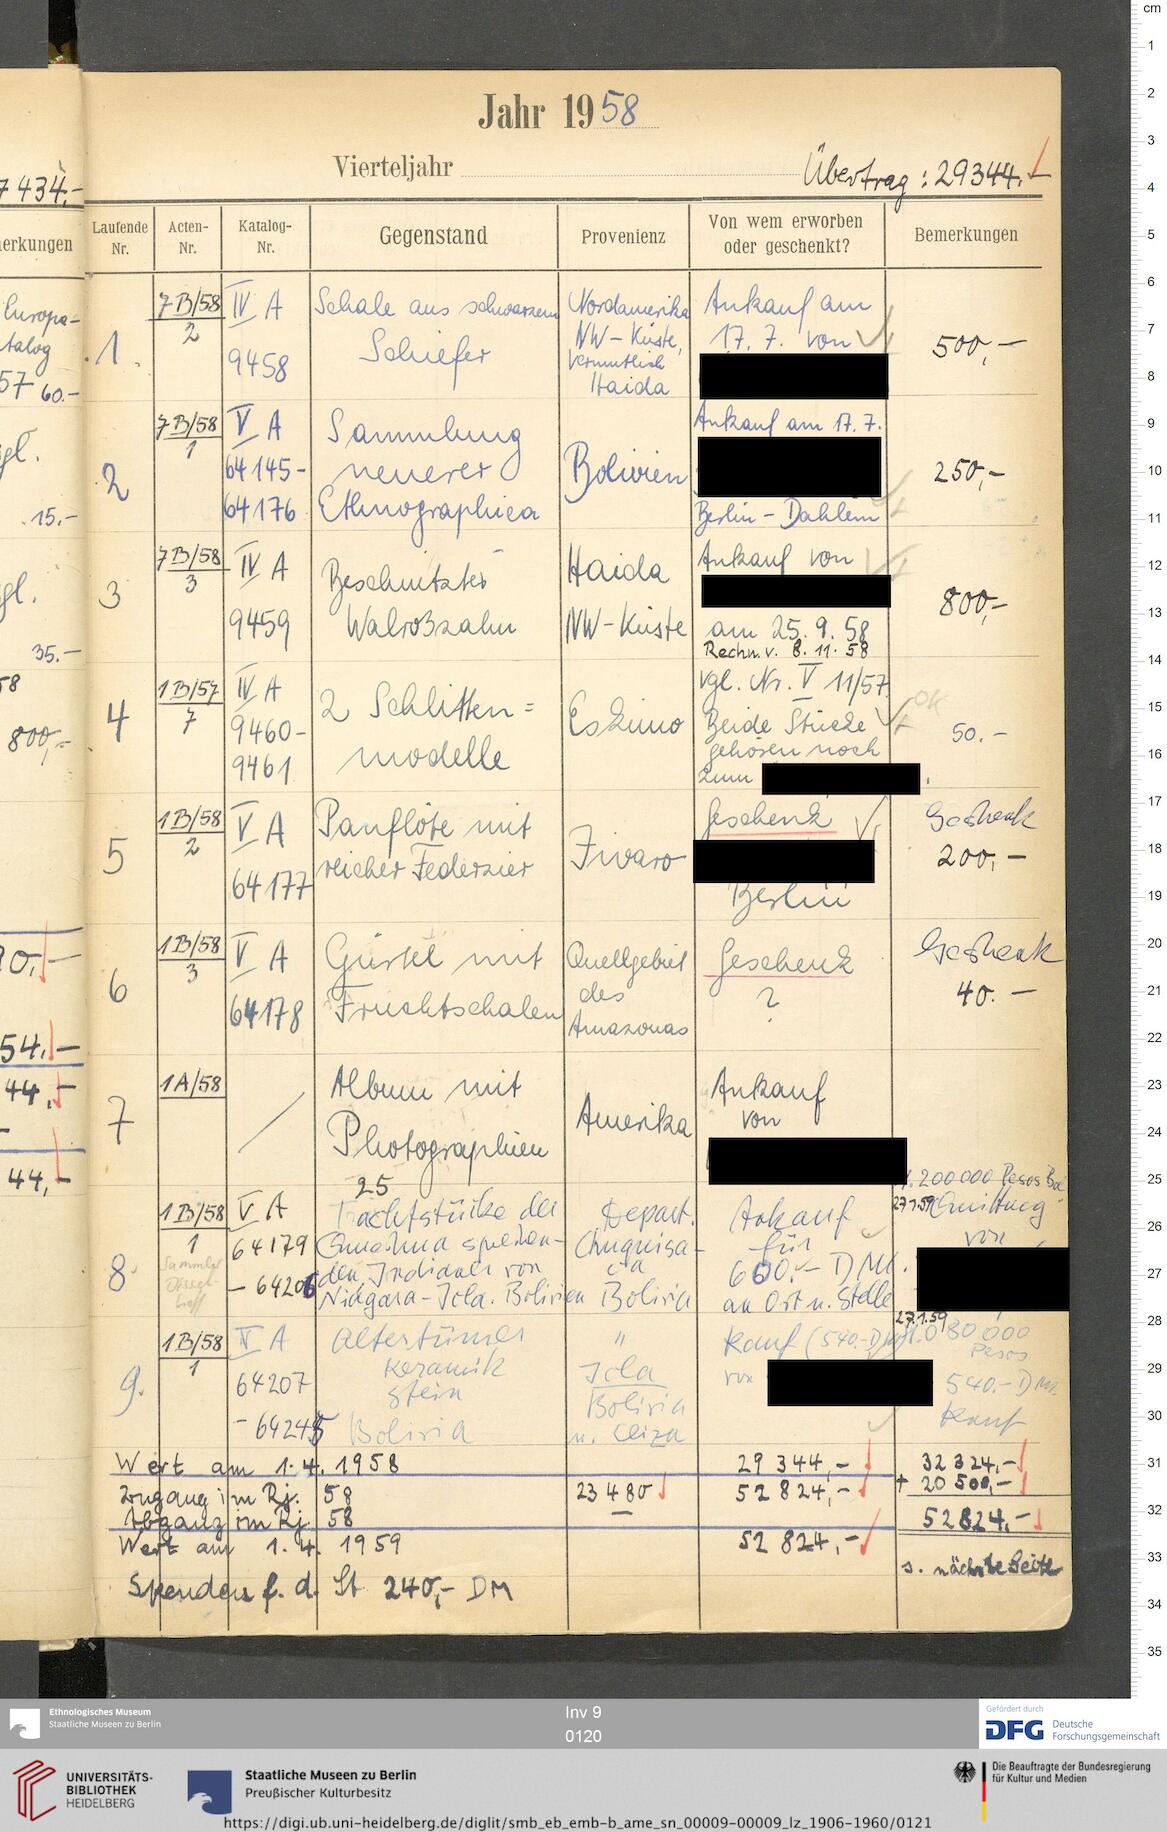 Jahr 1958
Vierteljahr
Übertrag: 29344.-
7 434.-
Laufende Nr.
Acten-Nr.
Katalog-Nr.
Gegenstand
Provenienz
Von wem erworben oder geschenkt?
Bemerkungen
1.
7B/58
2
IV A
9458
Schale aus schwarzem
Schiefer
Nordamerika
NW-Küste,
vermutlich
Haida
Ankauf am
17. 7. von
500,-
2
7B/58
1
V A
64145-
64176
Sammlung
neuerer
Ethnographica
Bolivien
Ankauf am 17. 7.
Berlin-Dahlem
250,-
3
7B/58
3
IV A
9459
Beschnitzter
Walroßzahn
Haida
NW-Küste
Ankauf von
am 25. 9. 58
Rechn. v. 8. 11. 58
800,-
4
1B/57
7
IV A
9460-
9461
2 Schlitten=
modelle
Eskimo
vgl. Nr. V 11/57
Beide Stücke
gehören noch
zum
OK
50.-
5
1B/58
2
V A
64177
Panflöte mit
reicher Federzier
Jivaro
Geschenk
Berlin
Geschenk
200,-
6
1B/58
3
V A
64178
Gürtel mit
Fruchtschalen
Quellgebiet
des
Amazonas
Geschenk
?
Geschenk
40.-
7
1A/58
Album mit
Photographien
25
Amerika
Ankauf
von
8
1B/58
1
Sammler
V A
64179
- 64206
Trachtstücke der
den Indianer von
Niagara-Icla. Bolivien
Depart.
Chuquisa-
ca
Bolivia
Ankauf
für
600.- DM.
an Ort u. Stelle
200000 Pesos Bol
27.1.59
von
9.
1B/58
1
V A
64207
- 64245
Altertümer
Keramik
Stein
Bolivia
"
Icla
Bolivia
u.
Kauf (540.-DM)
von
27.1.59
Pesos
540.- DM.
Kauf
Wert am 1. 4. 1958
29 344,-
32 324,-
Zugang im Rj. 58
23 480
52 824,-
+ 20 500,-
Abgang im Rj. 58
—
52 824,-
Wert am 1. 4. 1959
52 824,-
s. nächste Seite
Spenden f. d. St 240,- DM
Ethnologisches Museum
Staatliche Museen zu Berlin
Inv 9
0120
Gefördert durch
DFG Deutsche
Forschungsgemeinschaft
UNIVERSITÄTS-
BIBLIOTHEK
HEIDELBERG
Staatliche Museen zu Berlin
Preußischer Kulturbesitz
Die Beauftragte der Bundesregierung
für Kultur und Medien
https://digi.ub.uni-heidelberg.de/diglit/smb_eb_emb-b_ame_sn_00009-00009_lz_1906-1960/0121